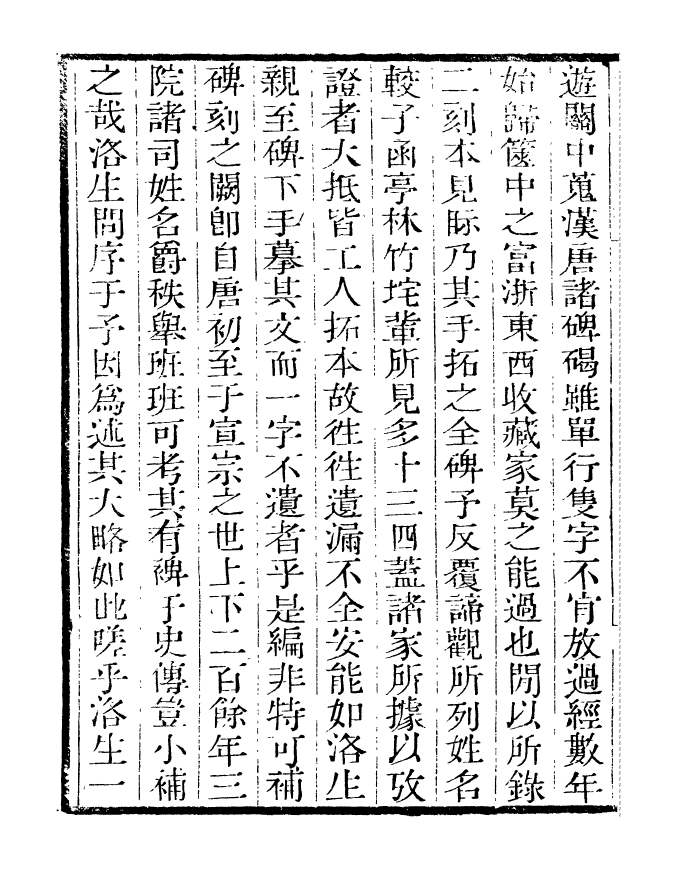 遊關中蒐漢唐諸碑碣雖單行隻字不肯放過經數年
始歸篋中之富浙東西收藏家莫之能過也閒以所錄
二刻本見眎乃其手拓之全碑予反覆諦觀所列姓名
較子函亭林竹垞輩所見多十三四蓋諸家所據以攷
證者大抵皆工人拓本故徃徃遺漏不全安能如洛生
親至碑下手摹其文而一字不遺者乎是編非特可補
碑刻之闕卽自唐初至于宣宗之世上下二百餘年三
院諸司姓名爵秩舉班班可考其有裨于史傳豈小補
之哉洛生問序于予因爲述其大略如此嗟乎洛生一